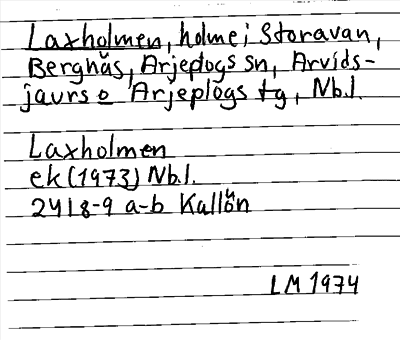 Laxholmen, holme i Storavan,
Bergnäs, Arjeplogs sn, Arvids-
jaurs o Arjeplogs tg, Nb.l.
Laxholmen
ek (1973) Nb.l.
24I8-9 a-b Kallön
LM 1974